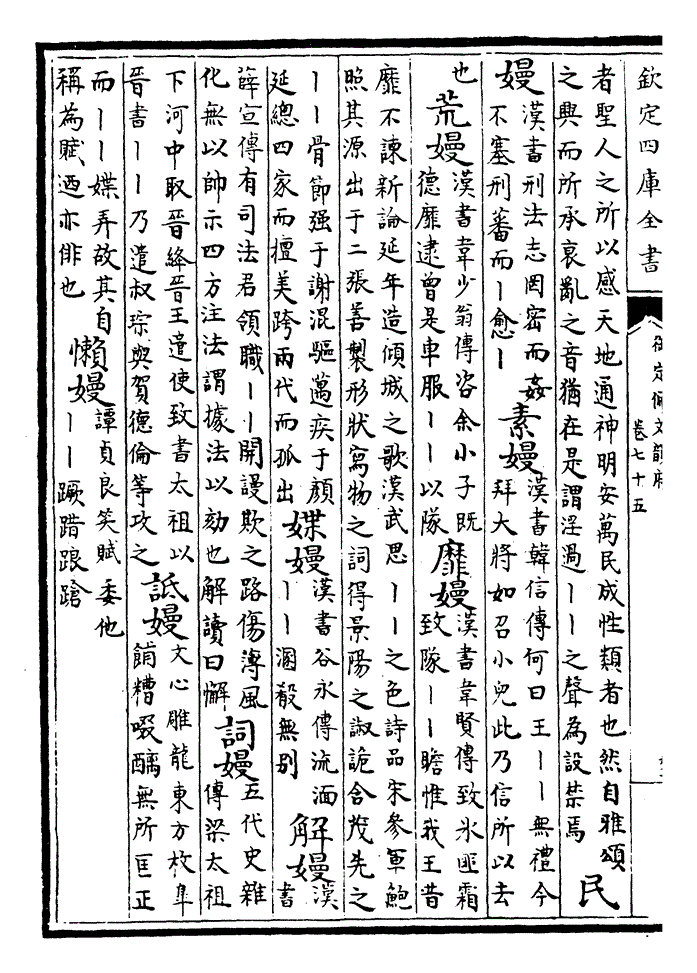 欽定四庫全書
御定佩文韻府
卷七十五
者聖人之所以感天地通神明安萬民成性類者也然自雅頌
之興而所承衰亂之音猶在是謂淫過丨丨之聲為設禁焉
民
嫚
漢書刑法志罔密而姦
不塞刑蕃而丨愈丨
素嫚
漢書韓信傳何曰王丨丨無禮今
拜大將如召小兒此乃信所以去
也
荒嫚
漢書韋少翁傳咨余小子既
德靡逮曾是車服丨丨以隊
靡嫚
漢書韋賢傳致氷匪霜
致隊丨丨瞻惟我王昔
靡不諫新論延年造傾城之歌漢武思丨丨之色詩品宋參軍鮑
照其源出于二張善製形狀寫物之詞得景陽之淑詭含茂先之
丨丨骨節强于謝混驅邁疾于顔
延總四家而擅美跨兩代而孤出
媟嫚
漢書谷永傳流湎
丨丨溷殽無别
解嫚
漢
書
薛宣傳有司法君領職丨丨開謾欺之路傷薄風
化無以帥示四方注法謂據法以劾也解讀曰懈
詞嫚
五代史雜
傳梁太祖
下河中取晉絳晉王遣使致書太祖以
晉書丨丨乃遣叔琮與賀德倫等攻之
詆嫚
文心雕龍東方枚臯
餔糟啜醨無所匡正
而丨丨媟弄故其自
稱為賦迺亦俳也
懶嫚
譚貞良笑賦委他
丨丨蹶踖踉蹌